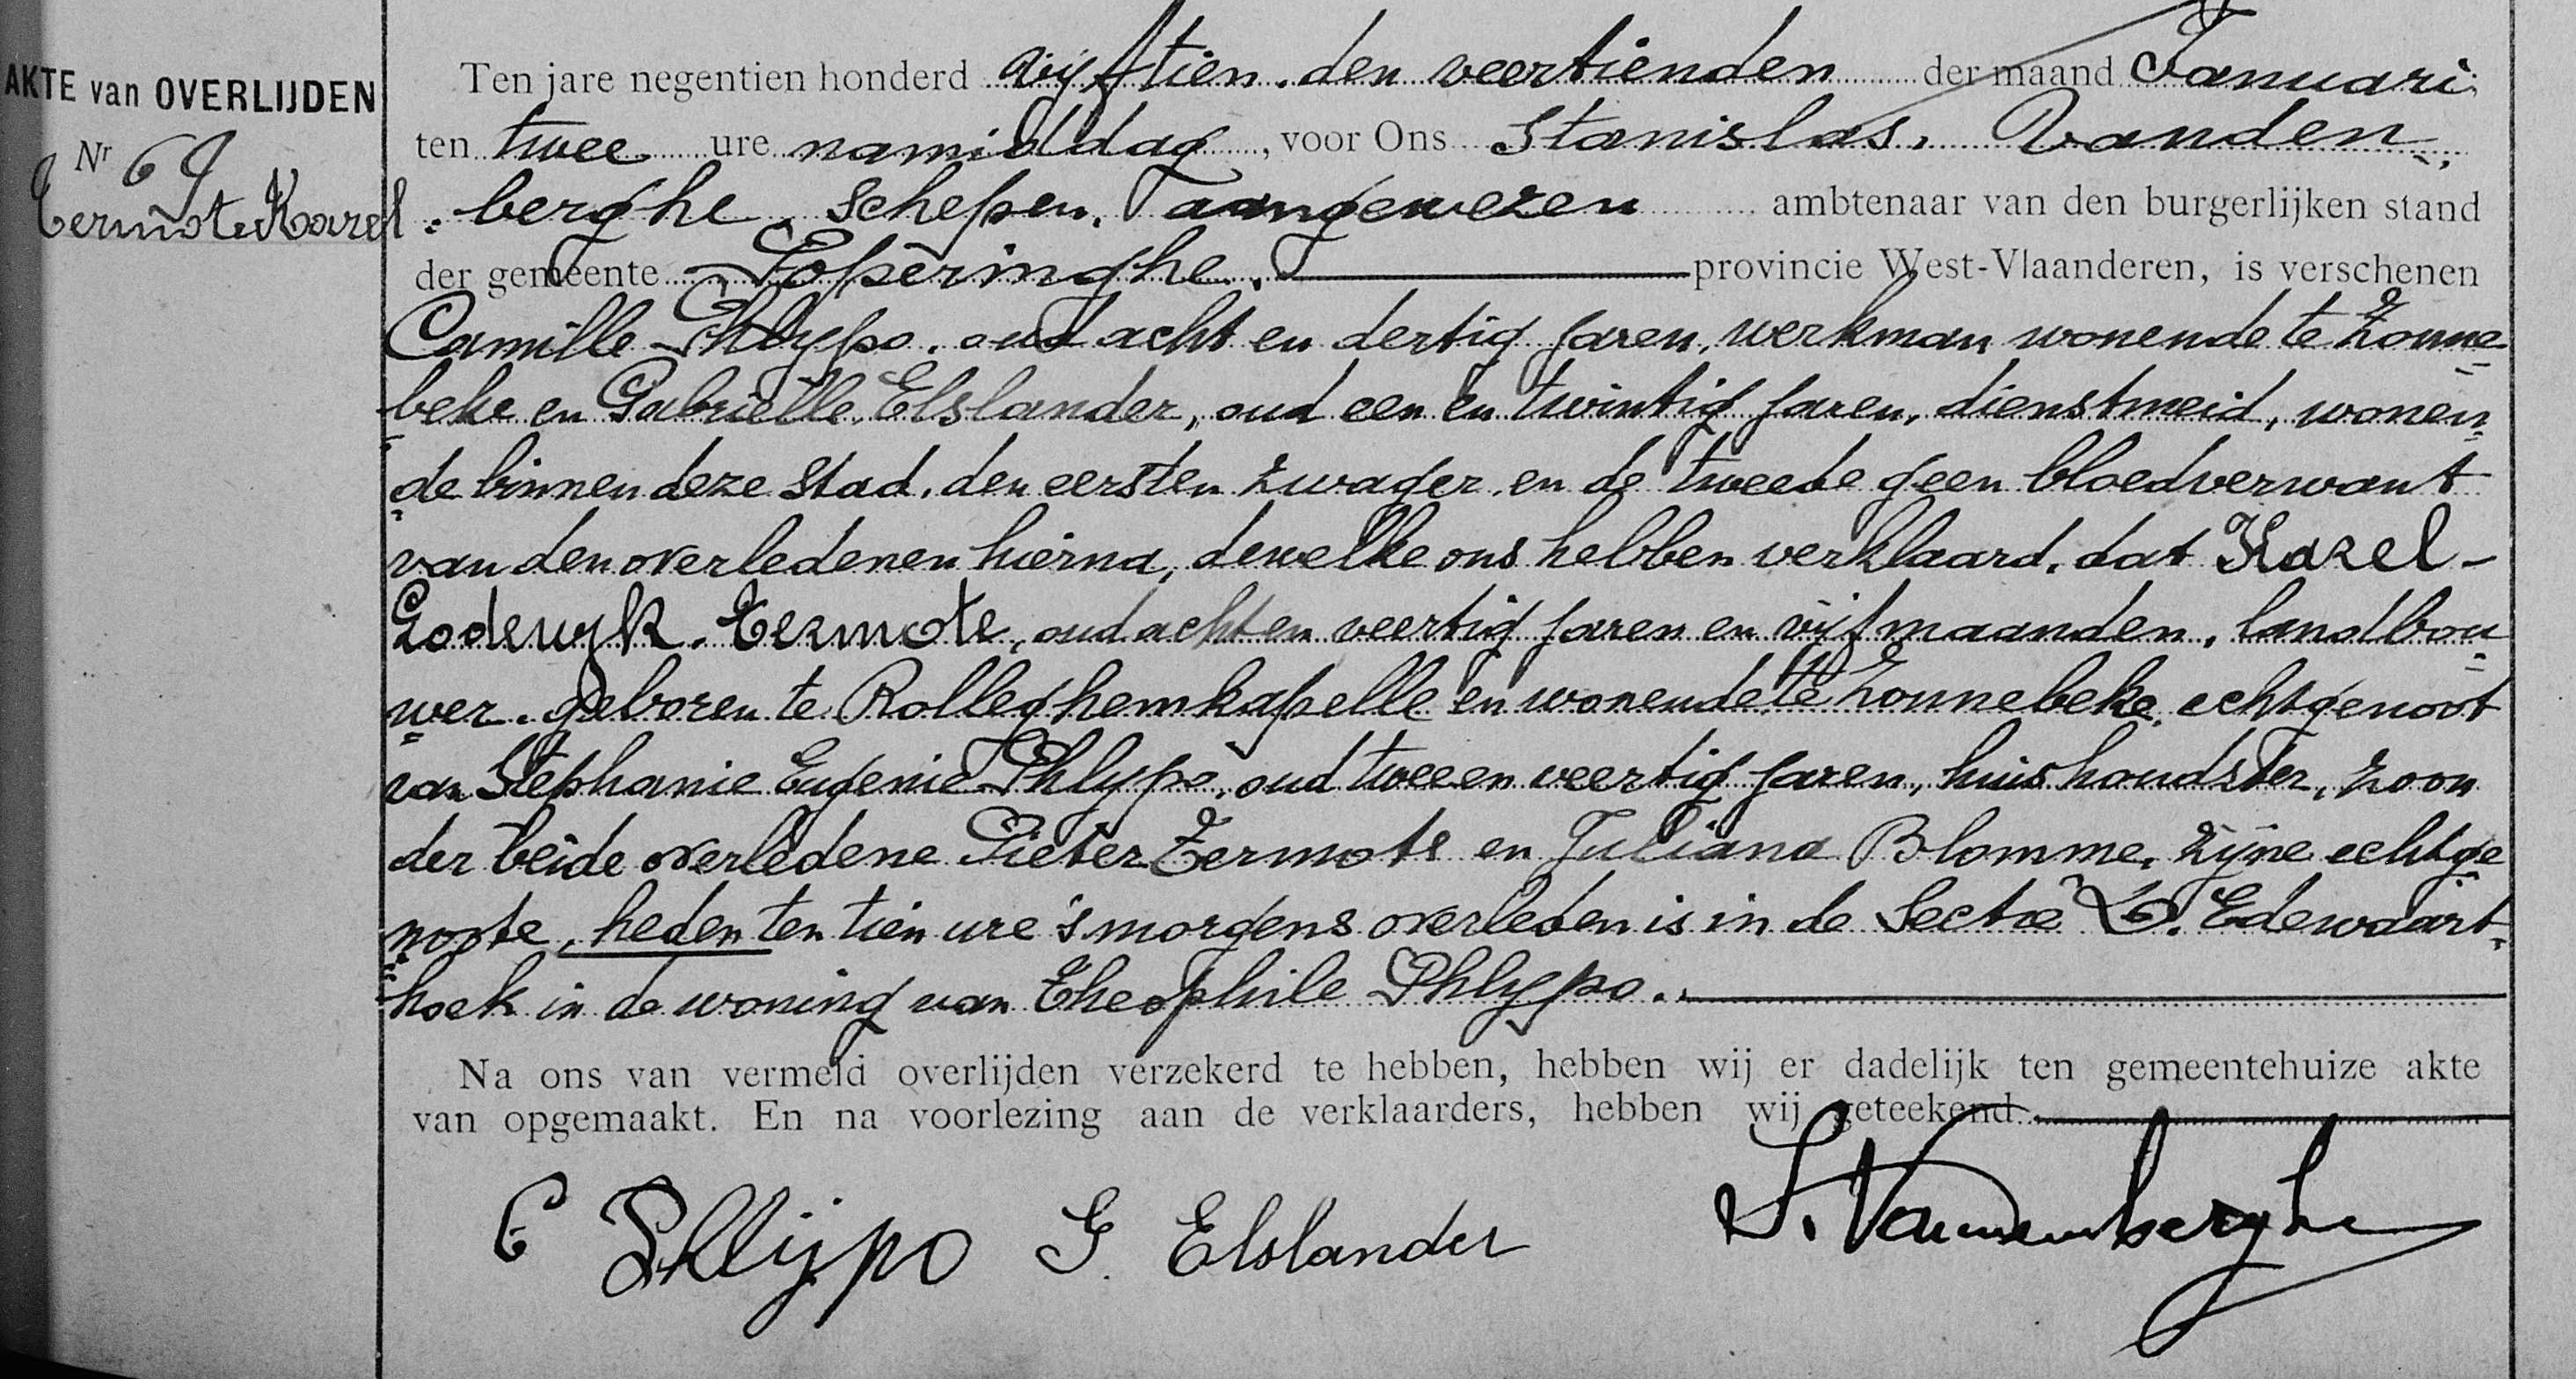 AKTE van OVERLIJDEN
Nr 69
Termote Karel
Ten jare negentien honderd vijftien. den veertienden der maand Januari,
ten twee ure namiddag, voor Ons Stanislas. Vanden=
=berghe. schepen. aangewezen ambtenaar van den burgerlijken stand
der gemeente Poperinghe. provincie West-Vlaanderen, is verschenen
Camille Phlypo. oud acht en dertig jaren, werkman wonende te Zonne=
beke en Gabrielle Elslander, oud een en twintig jaren, dienstmeid, wonen=
de binnen deze stad. den eersten zwager en de tweede geen bloedverwant
van den overledenen hierna, dewelke ons hebben verklaard. dat Karel-
Lodewyk. Termote, oud acht en veertig jaren en vijf maanden, landbou=
wer. geboren te Rolleghemkapelle en wonende te Zonnebeke, echtgenoot
van Stephanie Eugenie Phlypo, oud twee en veertig jaren, huishoudster, zoon
der beide overledene Pieter Termote en Juliana Blomme, zijne echtge=
noote, heden ten tien ure 's morgens overleden is in de Sectie D. Edewaart=
hoek in de woning van Theophile Phlypo.
Na ons van vermeld overlijden verzekerd te hebben, hebben wij er dadelijk ten gemeentehuize akte
van opgemaakt. En na voorlezing aan de verklaarders, hebben wij geteekend.
C Phlijpo G. Elslander S. Vandenberghe